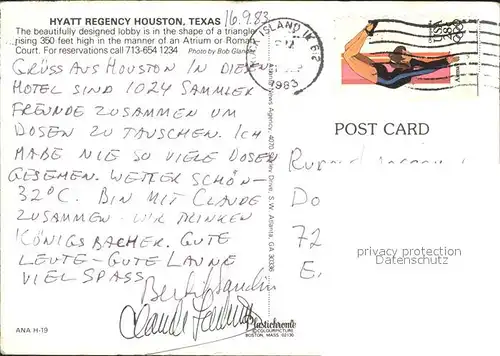 HYATT REGENCY HOUSTON, TEXAS
16.9.83
The beautifully designed lobby is in the shape of a triangle
rising 350 feet high in the manner of an Atrium or Roman
Court. For reservations call 713-654 1234 Photo by Bob Glan
GRÜSS AUS HOUSTON IN DIESEM
HOTEL SIND 1024 SAMMLER
FREUNDE ZUSAMMEN UM
DOSEN ZU TAUSCHEN. ICH
HABE NIE SO VIELE DOSEN
GESEHEN. WETTER SCHÖN-
32°C. BIN MIT CLAUDE
ZUSAMMEN - WIR TRINKEN
KÖNIGSBACHER. GUTE
LEUTE - GUTE LAUNE
VIEL SPASS
ANA H-19
News Agency, 4070 Drive, S.W. Atlanta, GA 30336
Plastichrome
COLOURPICTURE
BOSTON, MASS. 02130
ISLAND
1983
USA
28c
POST CARD
DO
72
E.
privacy protection
Datenschutz